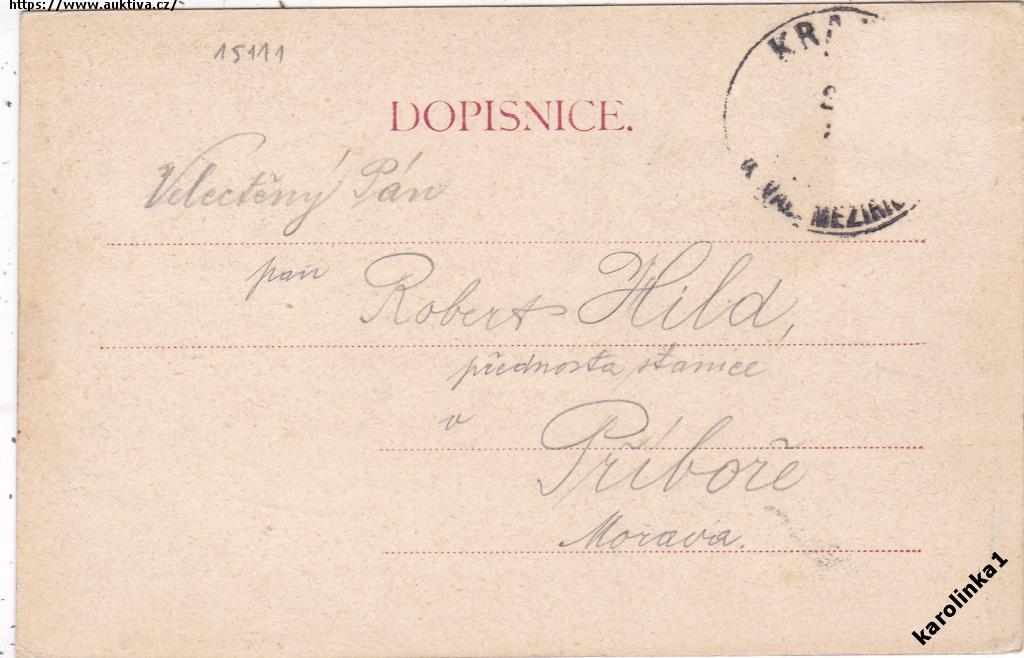 https://www.auktiva.cz/
15111
KRA
u VAL. MEZIŘÍČ
DOPISNICE.
Velectěný Pán
pan
Robert Hild,
přednosta stanice
v
Příboře
Morava.
karolinka1